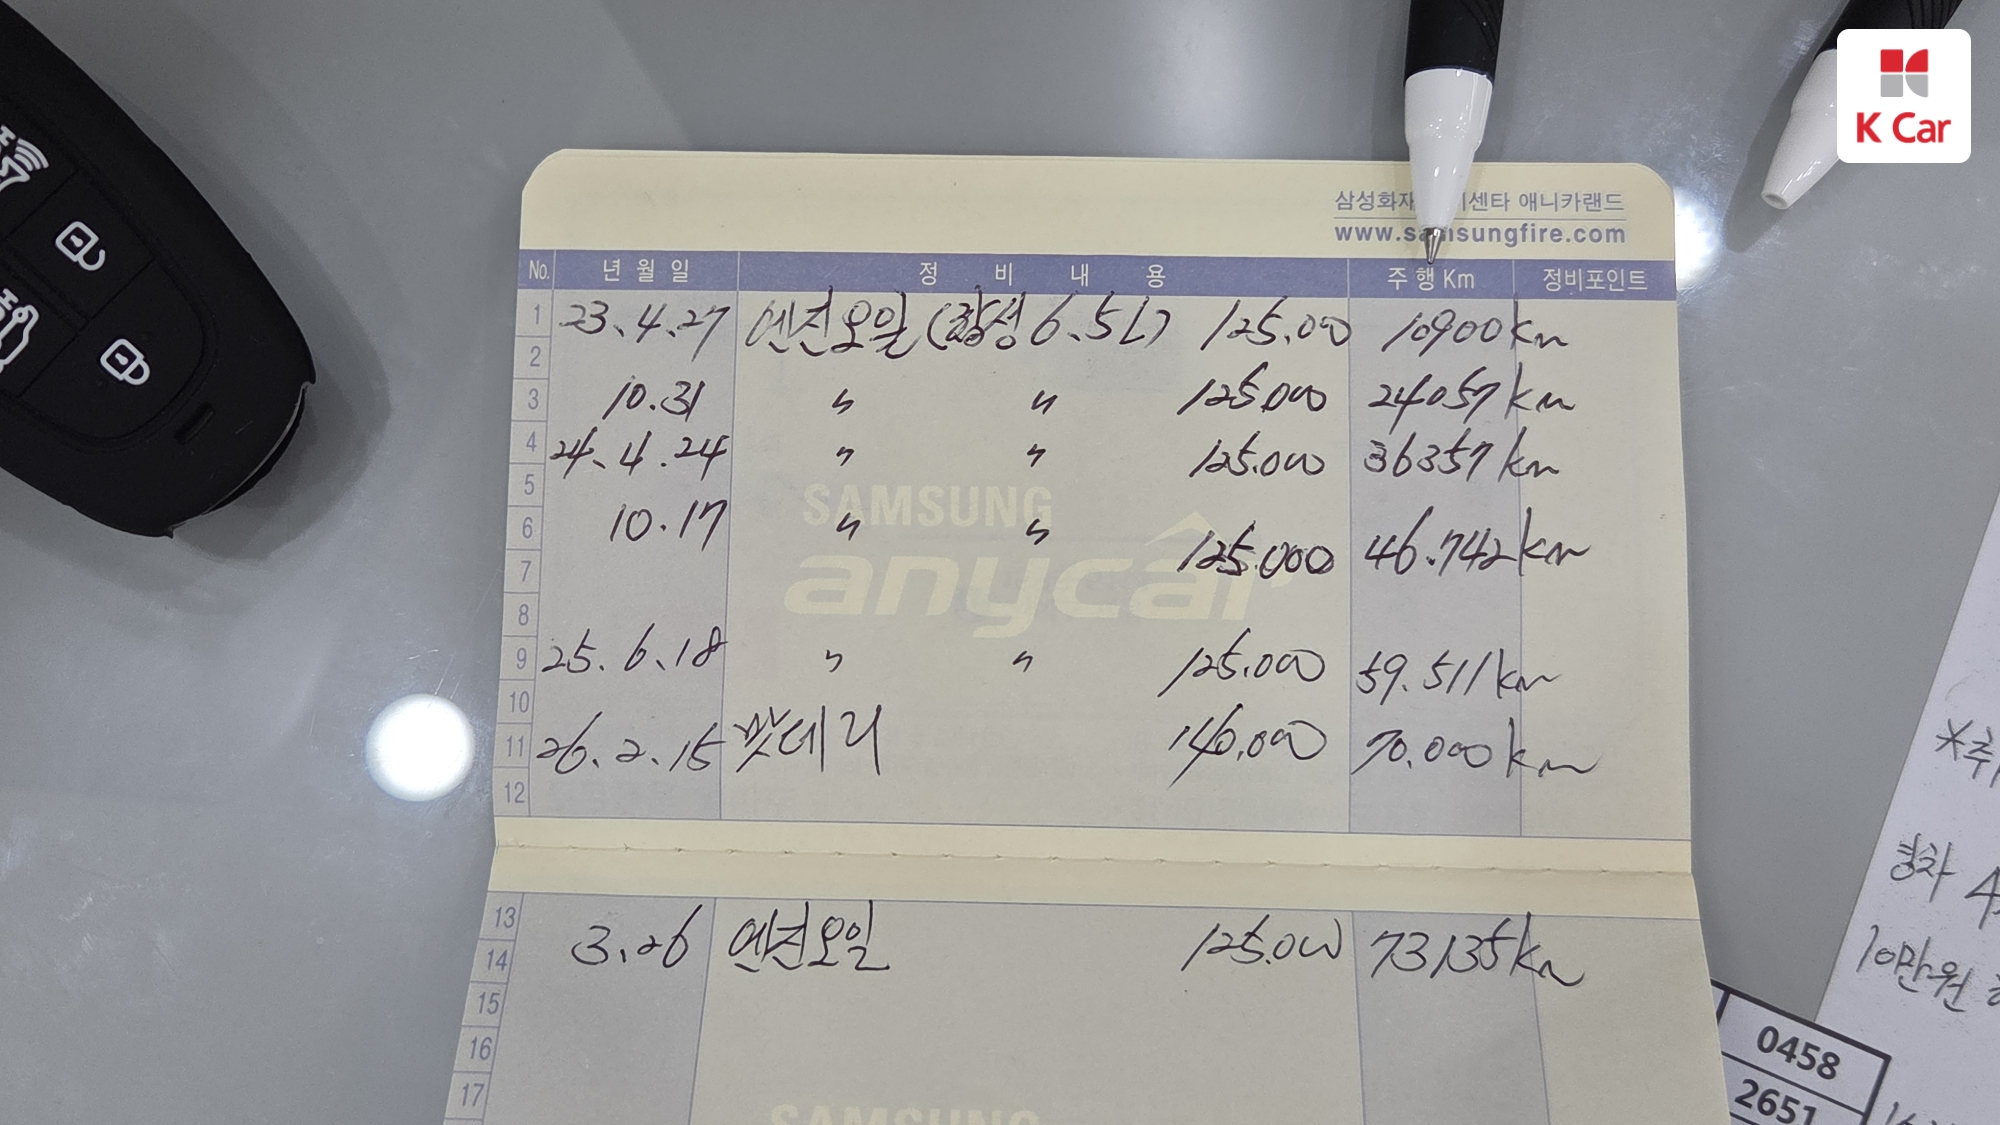 K Car
삼성화재 센타 애니카랜드
www.samsungfire.com
No. 년 월 일 정 비 내 용 주 행 Km 정비포인트
1 23.4.27 엔진오일 (합성 6.5L) 125.000 10900km
2
3 10.31 〃 〃 125.000 24057km
4 24.4.24 〃 〃 125.000 36357km
5
6 10.17 〃 〃 125.000 46.742km
7
8
9 25.6.18 〃 〃 125.000 59.511km
10
11 26.2.15 밧데리 140.000 70.000km
12
SAMSUNG
anycar
13
14 3.26 엔진오일 125.000 73135km
15
16
17
SAMSUNG
10만원
0458
2651